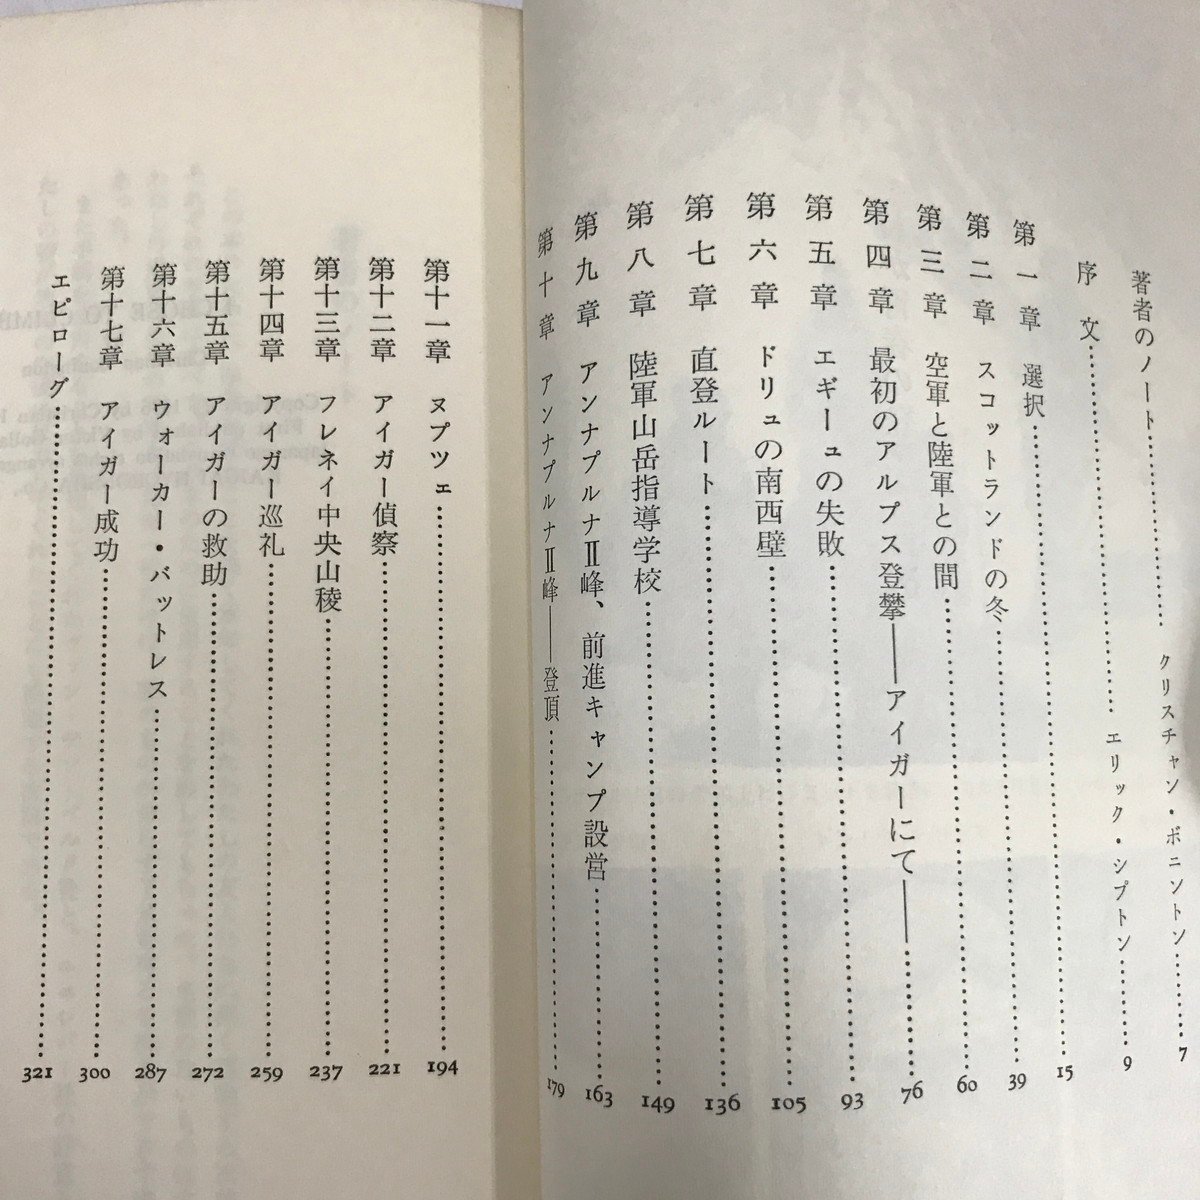 著者のノート……クリスチャン・ボニントン……7
序文……エリック・シプトン……9
第一章 選択……15
第二章 スコットランドの冬……39
第三章 空軍と陸軍との間……60
第四章 最初のアルプス登攀——アイガーにて——……76
第五章 エギーュの失敗……93
第六章 ドリュの南西壁……105
第七章 直登ルート……136
第八章 陸軍山岳指導学校……149
第九章 アンナプルナⅡ峰、前進キャンプ設営……163
第十章 アンナプルナⅡ峰——登頂……179
第十一章 ヌプツェ……194
第十二章 アイガー偵察……221
第十三章 フレネイ中央山稜……237
第十四章 アイガー巡礼……259
第十五章 アイガーの救助……272
第十六章 ウォーカー・バットレス……287
第十七章 アイガー成功……300
エピローグ……321